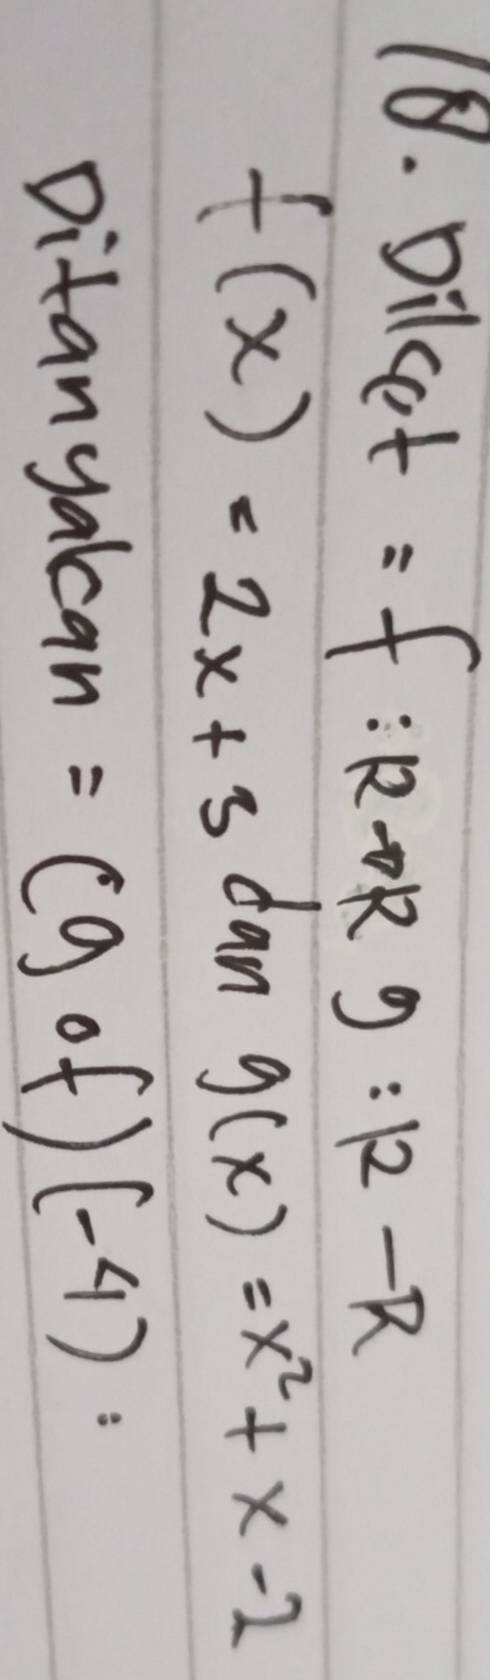 18. Diket = f : R → R g : R - R
f(x) = 2x + 3 dan g(x) = x² + x - 2
Ditanyakan = (g o f) (-4) :